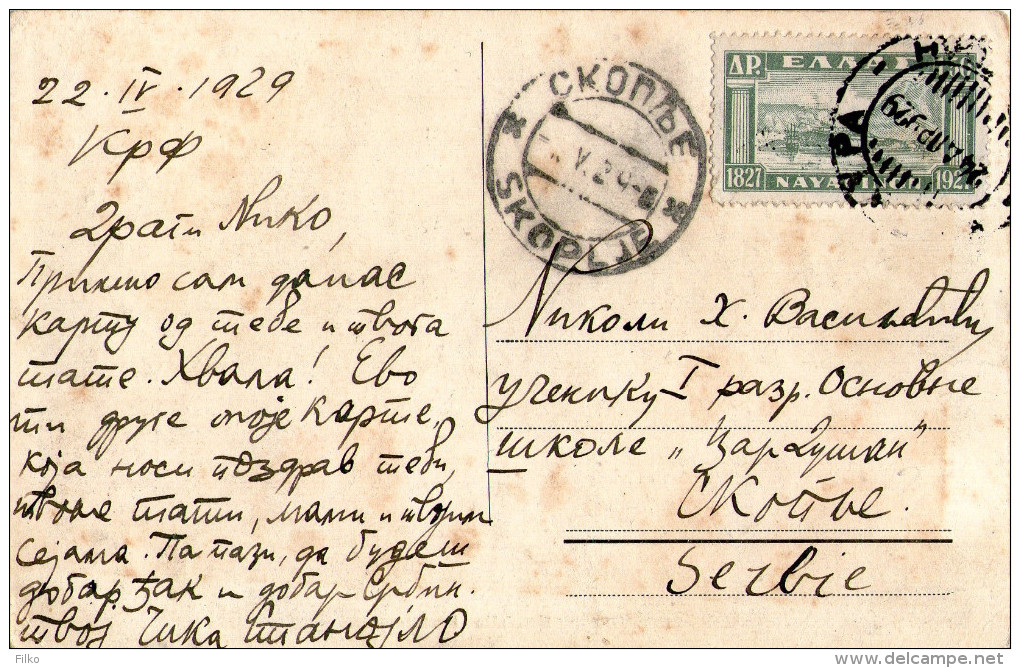 22. IV. 1929
Крф
Драги Нико,
Примио сам данас
карту од тебе и твога
тате. Хвала! Ево
ти друге моје карте,
која носи поздрав теби,
твоме тати, мами и твојим
сејама. Па пази, да будеш
добар ђак и добар Србин.
Твој Чика Станојло
СКОПЉЕ
V. 29
SKOPLJE
ΔΡ. ΕΛΛΑΣ
1827 1927
24 ΑΠΡ 29
Николи Х. Васиљевић
ученику I разр. Основне
школе „Цар Душан"
Скопље.
Serbie
Filko
delcampe.net